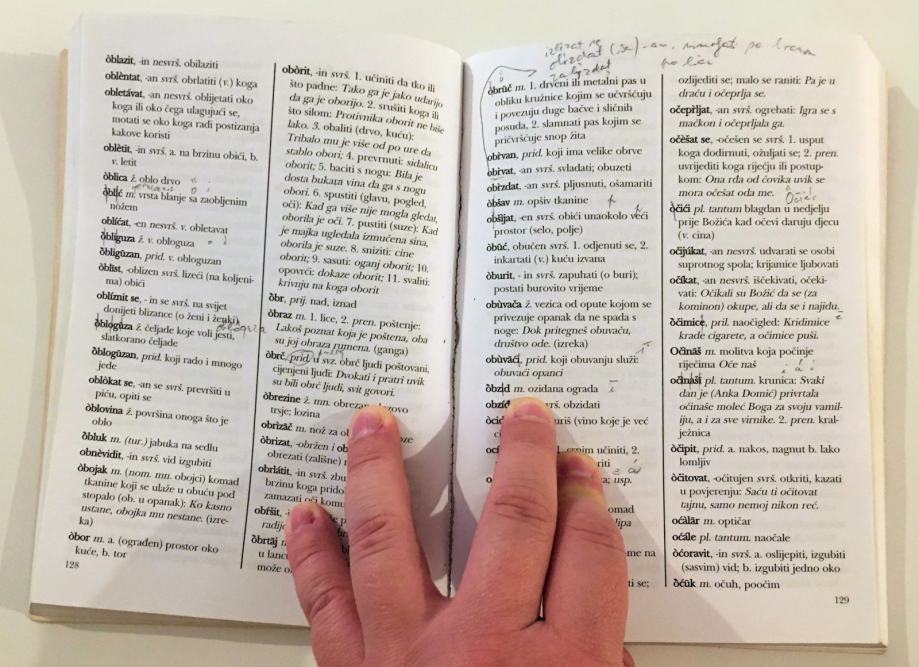 òblazit, -in nesvrš. obilaziti
oblèntat, -an svrš. obrlatiti (v.) koga
obletávat, -an nesvrš. oblijetati oko
koga ili oko čega ulagujući se,
motati se oko koga radi postizanja
kakove koristi
oblètit, -in svrš. a. na brzinu obići, b.
v. letit
òblica ž. oblo drvo
òblić m. vrsta blanje sa zaobljenim
nožem
oblíćat, -en nesvrš. v. obletavat
òbliguza ž. v. obloguza
òbligūzan, prid. v. obloguzan
oblist, -oblizen svrš. lizeći (na koljeni-
ma) obići
oblíznit se, -in se svrš. na svijet
donijeti blizance (o ženi i žetaki)
òblogūza ž. čeljade koje voli jesti,
slatkorano čeljade
òblogūzan, prid. koji rado i mnogo
jede
oblòkat se, -an se svrš. prevršiti u
piću, opiti se
òblovina ž. površina onoga što je
oblo
òbluk m. (tur.) jabuka na sedlu
obnèvidit, -in svrš. vid izgubiti
òbojak m. (nom. mn. obojci) komad
tkanine koji se ulaže u obuću pod
stopalo (ob. u opanak): Ko kasno
ustane, obojka mu nestane. (izre-
ka)
òbor m. a. (ograđen) prostor oko
kuće, b. tor
128
obòrit, -in svrš. 1. učiniti da tko ili
što padne: Tako ga je jako udarijo
da ga je oborijo. 2. srušiti koga ili
što silom: Protivnika oborit ne biše
lako. 3. obaliti (drvo, kuću):
Tribalo mu je više od po ure da
stablo obori; 4. prevrnuti: sidalicu
oborit; 5. baciti s nogu: Bila je
dosta bukata vina da ga s nogu
obori. 6. spustiti (glavu, pogled,
oči): Kad ga više nije mogla gledat,
oborila je oči. 7. pustiti (suze): Kad
je majka ugledala izmučena sina,
oborila je suze. 8. sniziti: cine
oborit; 9. sasuti: oganj oborit; 10.
opovrći: dokaze oborit; 11. svaliti:
krivnju na koga oborit
òbr, prij. nad, iznad
òbraz m. 1. lice, 2. pren. poštenje:
Lakoš poznat koja je poštena, oba
su joj obraza rumena. (ganga)
òbrč, prid. u svz. obrč ljudi poštovani,
cijenjeni ljudi: Dvokati i pratri uvik
su bili obrč ljudi, svit govori.
òbrezine ž. mn. obrezano lozovo
trsje; lozina
obrizāč m. nož za
òbrizat, -obržen i
obrezati (zališne)
obrlátit, -in svrš.
brzinu koga
zamazati oči
obŕšit, -in
radije
òbrtāj m.
u lancu
može
izlizat se
olizgat (se) -an,
zalizdat
òbrūč m. 1. drveni ili metalni pas u
obliku kružnice kojim se učvršćuju
i povezuju duge bačve i sličnih
posuda, 2. slamnati pas kojim se
pričvršćuje snop žita
obr̀van, prid. koji ima velike obrve
obr̀vat, -an svrš. svladati; obuzeti
obr̀zdat, -an svrš. pljusnuti, ošamariti
òbšav m. opšiv tkanine
obšíjat, -en svrš. obići unaokolo veći
prostor (selo, polje)
òbūć, obučen svrš. 1. odjenuti se, 2.
inkartati (v.) kuću izvana
òburit, - in svrš. zapuhati (o buri);
postati burovito vrijeme
obùvača ž. vezica od opute kojom se
privezuje opanak da ne spada s
noge: Dok pritegneš obuvaču,
društvo ode. (izreka)
obùvāćī, prid. koji obuvanju služi:
obuvaći opanci
òbzīd m. ozidana ograda
obzíd svrš. obzidati
(vino koje je već
učiniti, 2.
usp.
omad
me na
ti se;
ozlijediti se; malo se raniti: Pa je u
draču i očeprlja se.
očepr̀ljat, -an svrš. ogrebati: Igra se s
mačkon i očeprljala ga.
očèšat se, -očešen se svrš. 1. usput
koga dodirnuti, ožuljati se; 2. pren.
uvrijediti koga riječju ili postup-
kom: Ona rđa od čovika uvik se
mora očešat oda me.
òčići pl. tantum blagdan u nedjelju
prije Božića kad očevi daruju djecu
(v. cina)
očijúkat, -an nesvrš. udvarati se osobi
suprotnog spola; krijamice ljubovati
očíkat, -an nesvrš. iščekivati, očeki-
vati: Očikali su Božić da se (za
kominon) okupe, ali da se i najidu.
òčimicē, pril. naočigled: Kridimice
krade cigarete, a očimice puši.
Očināš m. molitva koja počinje
riječima Oče naš
očināši pl. tantum. krunica: Svaki
dan je (Anka Domić) privrtala
očinaše moleć Boga za svoju vamil-
iju, a i za sve virnike. 2. pren. kral-
ježnica
òčipit, prid. a. nakos, nagnut b. lako
lomljiv
òčitovat, -očitujen svrš. otkriti, kazati
u povjerenju: Saću ti očitovat
tajnu, samo nemoj nikon reć.
oćàlār m. optičar
oćále pl. tantum. naočale
oćoravit, -in svrš. a. oslijepiti, izgubiti
(sasvim) vid; b. izgubiti jedno oko
òćūk m. očuh, poočim
129